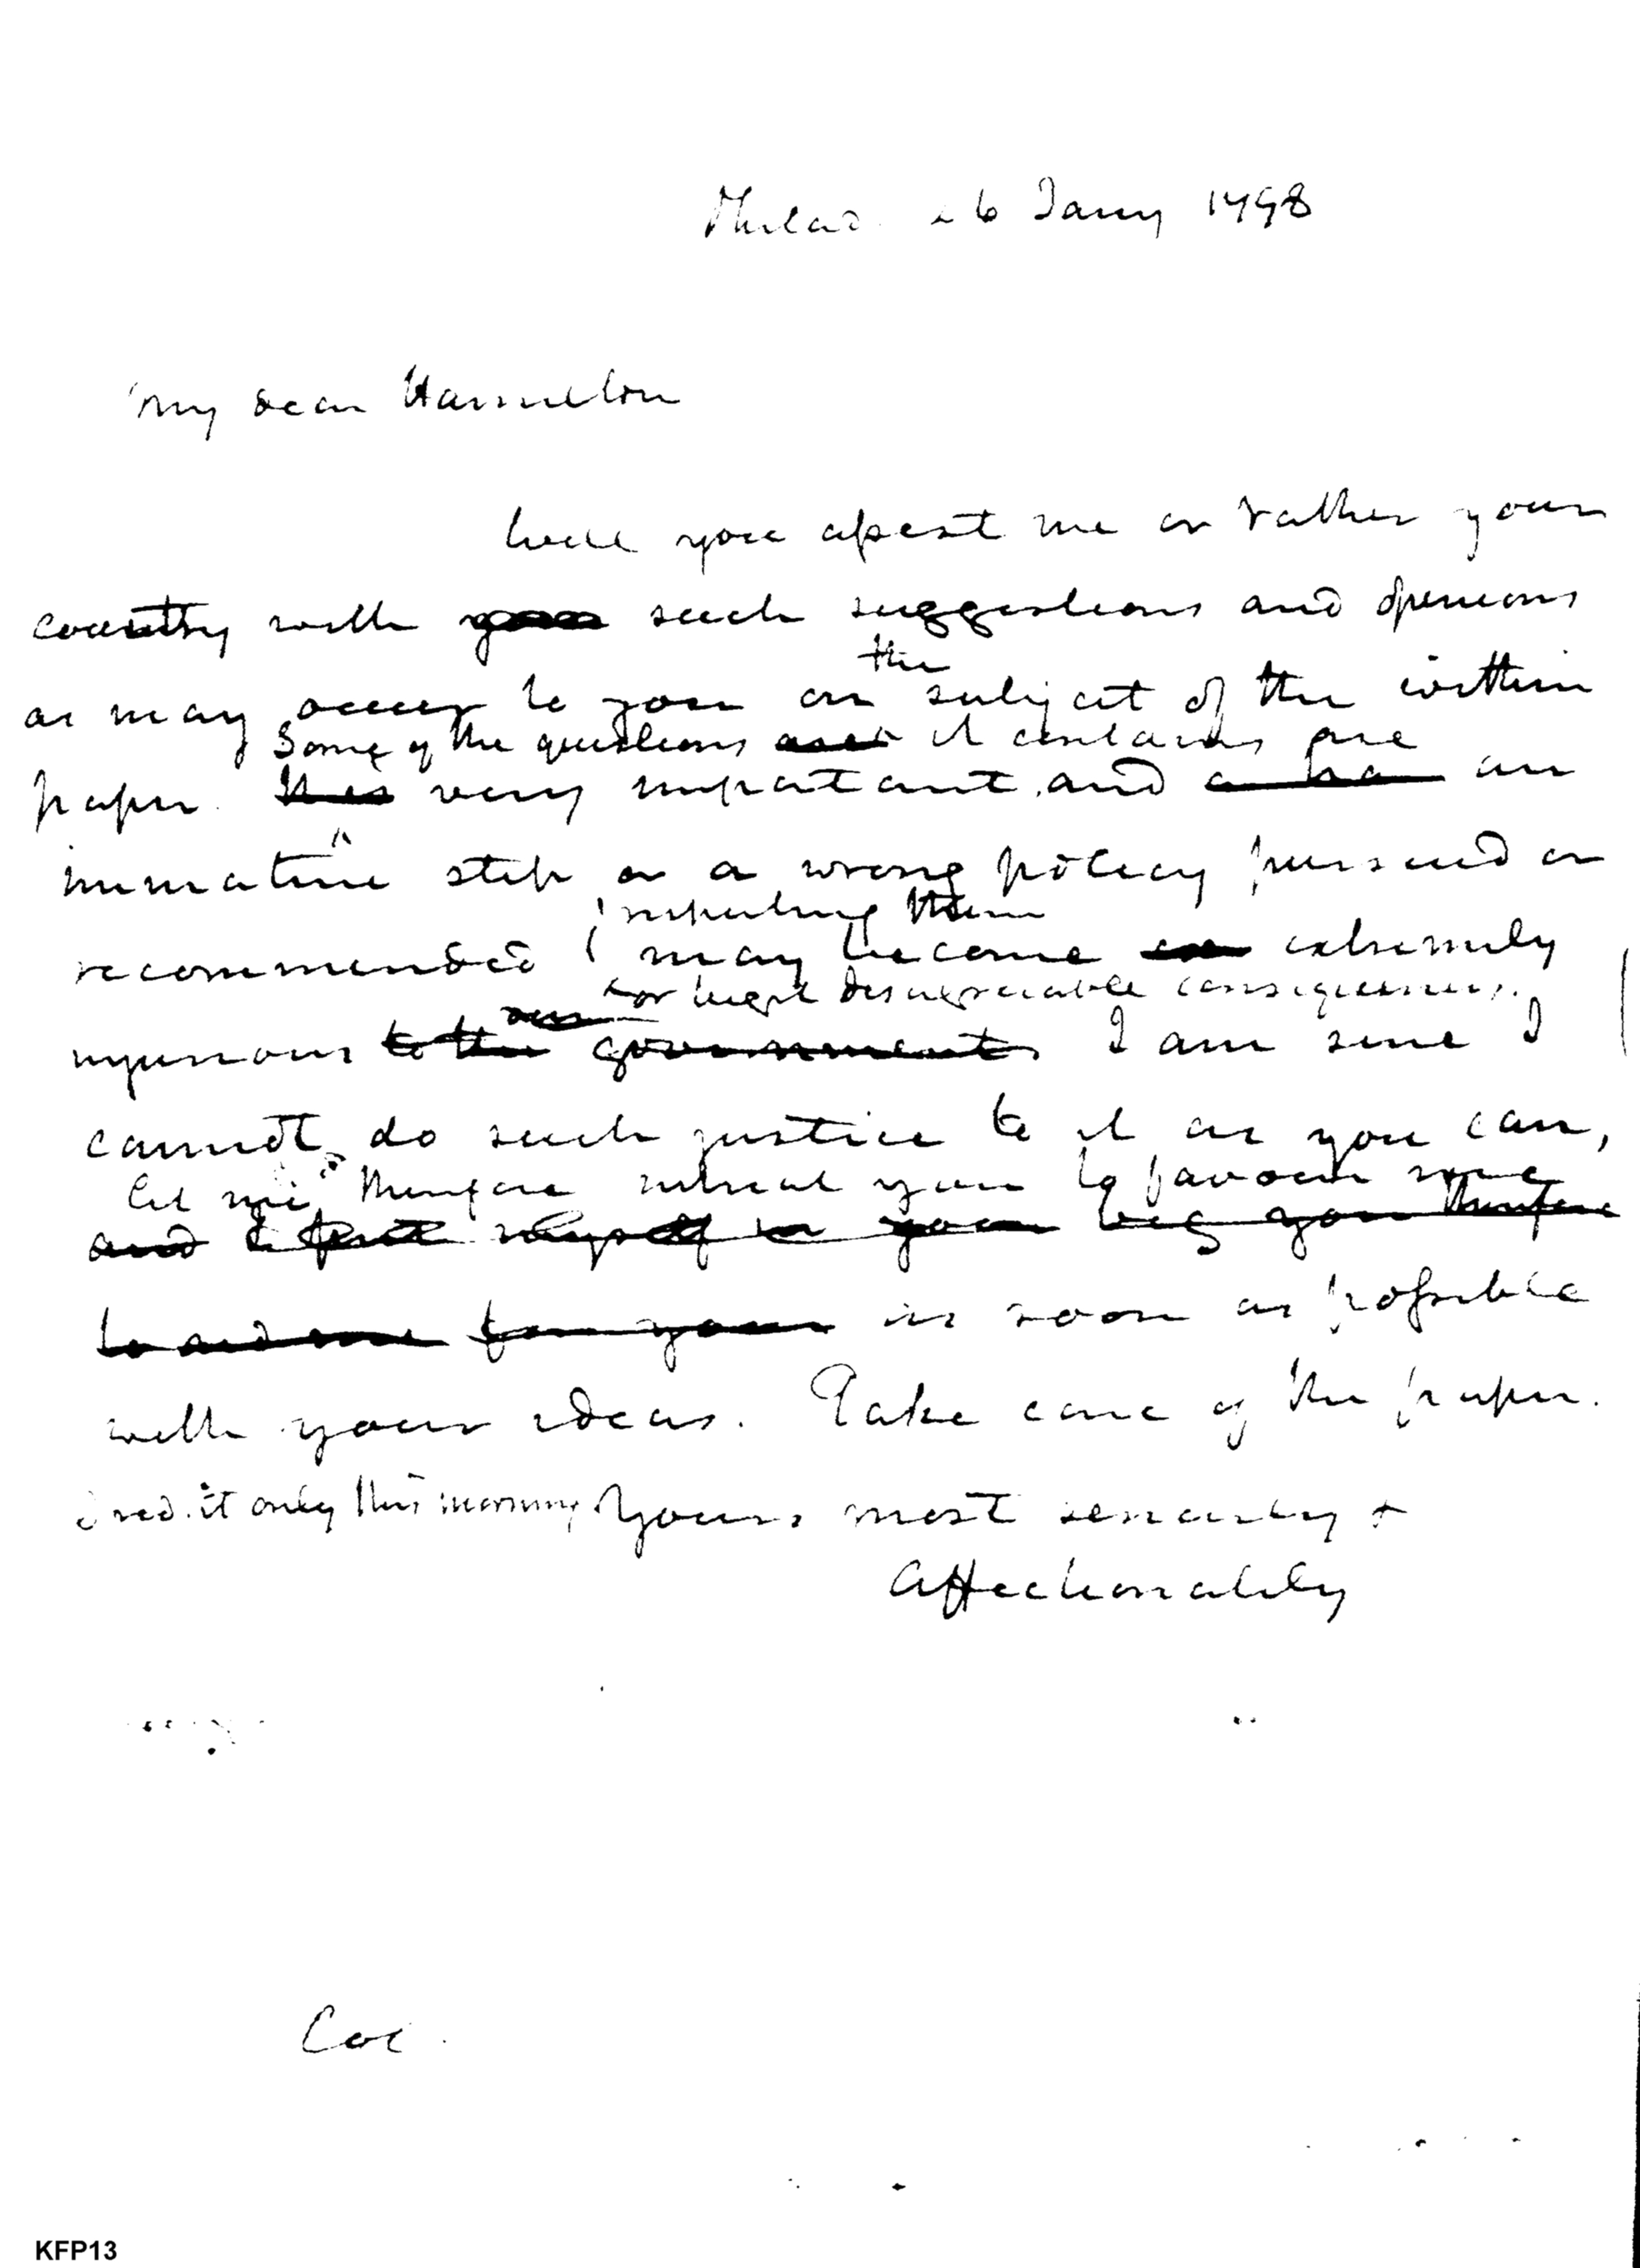 Philad. 26 Jany 1798
My dear Hamilton
Will you assist me or rather your
country with such suggestions and opinions
the
as may occur to you on subject of the within
Some of the questions it contains are
paper. It is very important and an
immature step or a wrong policy pursued or
respecting them
recommended may become extremely
or beget disagreeable consequences.
injurious to the governments I am sure I
cannot do such justice to it as you can,
let me therefore intreat you to favour me
and myself in your beg you therefore
to aid me from your as soon as possible
with your ideas. Take care of the paper.
I red. it only this morning. Yours most sincerely +
affectionately
KFP13